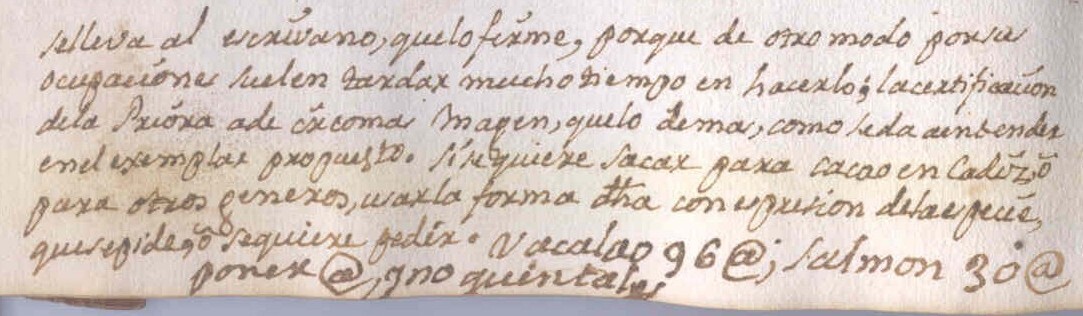 selleva al escrivano, quelo firme, porque de otro modo por sus
ocupaciones suelen tardar mucho tiempo en hacerlo; la certificacion
dela Priora a de cır comas Magen, quelo demas, como se da a entender
enel exemplar propuesto. si se quiere sacar para cacao en Cadiz, ô
para otros generos, usar la forma dħa con espresion dela especie,
que se pide, ô se quiere pedir. Vacalao 96 @; salmon 30 @
poner @, y no quintales